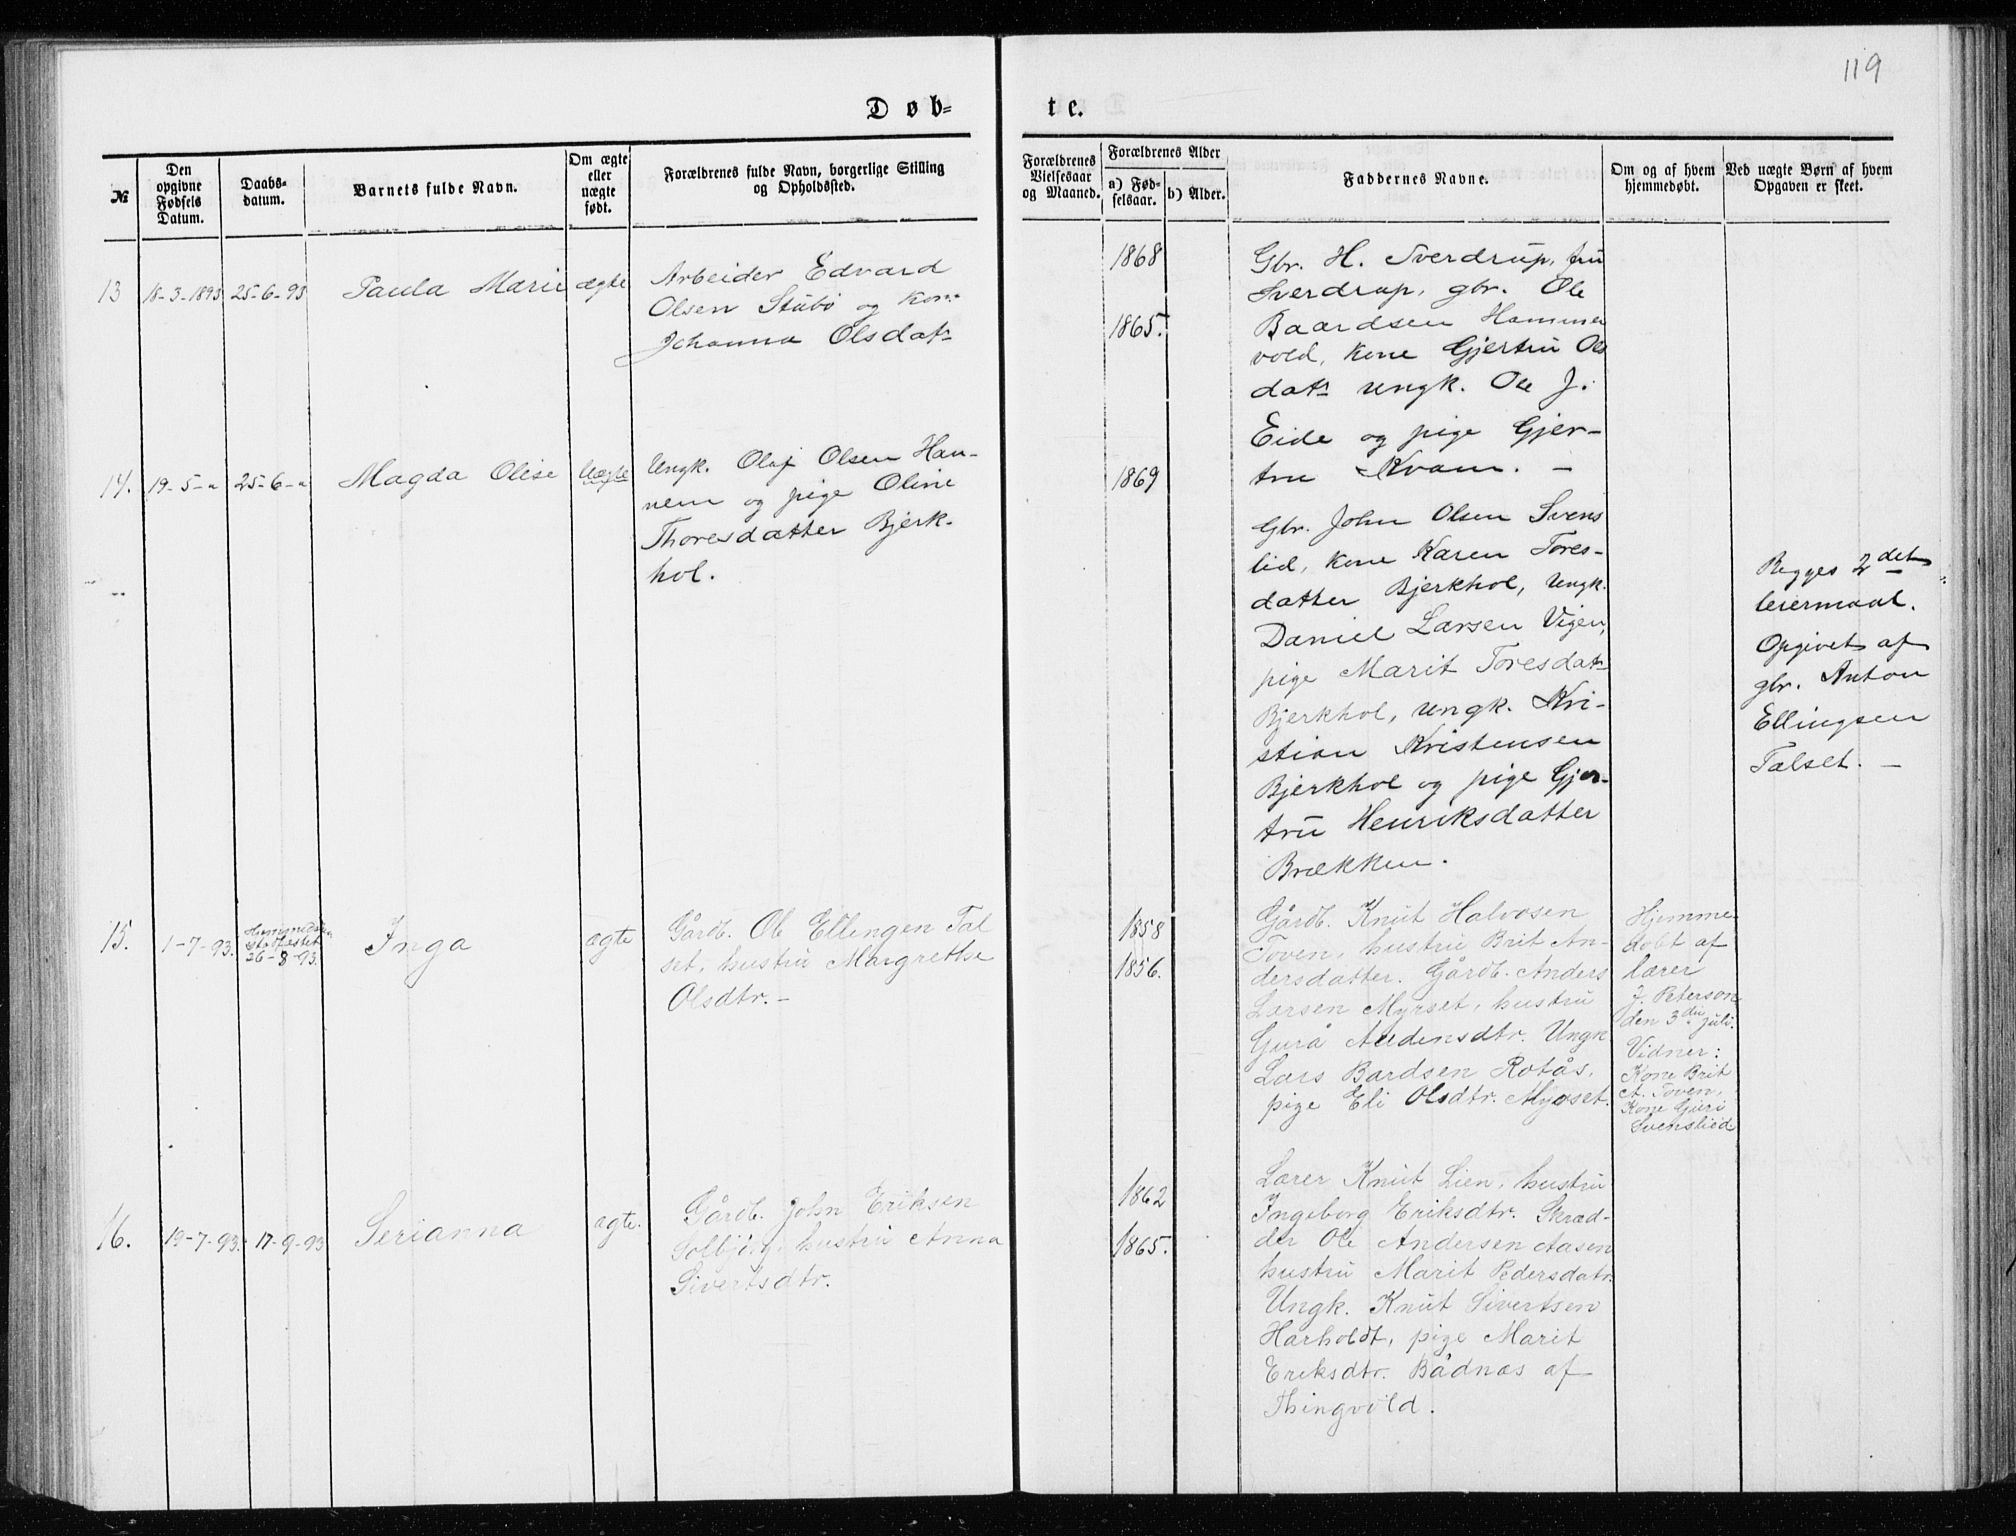 119
Døb-
te.
№
Den opgivne Fødsels Datum.
Daabs-datum.
Barnets fulde Navn.
Om ægte eller uægte født.
Forældrenes fulde Navn, borgerlige Stilling og Opholdssted.
Forældrenes Vielsesaar og Maaned.
Forældrenes Alder
a) Fødselsaar.
b) Alder.
Faddernes Navne.
Om og af hvem hjemmedøbt.
Ved uægte Børn af hvem Opgaven er skeet.
13
18-3-1893
25-6-93
Paula Marie
ægte
Arbeider Edvard
Olsen Stubø og kone
Johanna Olsdat
1868
1865.
Gbr. H. Sverdrup, fru
Sverdrup, gbr. Ole
Baardsen Hammer
vold, kone Gjertru Ols
datr ungk. Ole J.
Eide og pige Gjer-
tru Kvam. -
14.
19-5-"
25-6-"
Magda Olise
Uægte
Ungk. Olaf Olsen Han-
nem og pige Oline
Thoresdatter Bjerk-
hol.
1869
Gbr. John Olsen Svens
lid, kone Karen Tores-
datter Bjerkhol, ungk.
Daniel Larsen Vigen,
pige Marit Toresdatr
Bjerkhol, ungk. Kri-
stian Kristensen
Bjerkhol og pige Gjer-
tru Henriksdatter
Brækken.
Begges 2det
leiermaal.
Opgivet af
gbr. Anton
Ellingsen
Talset. -
15.
1-7-93.
stadfæstet
26-8-93.
Inga
ægte
Gårdb. Ole Ellengen Tal
set, hustru Margrethe
Olsdtr. -
1858
1856.
Gårdb. Knut Halvosen
Toven, hustru Brit An-
dersdatter. Gårdb. Anders
Larsen Myrset, hustru
Gurå Audensdtr. Ungk
Lars Bardsen Rotås,
pige Eli Olsdtr. Myrset.
Hjemme-
døbt af
lærer
J. Peterson
den 3die juli.
Vidner:
Kone Brit
A. Toven,
Kone Guri
Svenslied
16.
19-7-93.
17-9-93
Serianna
ægte.
Gårdb. John Eriksen
Solbjørg, hustru Anna
Sivertsdtr.
1862
1865.
Lærer Knut Lien, hustru
Ingeborg Eriksdtr. Skræd-
der Ole Andersen Aasen
hustru Marit Pedersdatr.
Ungk. Knut Sivertsen
Harholdt, pige Marit
Eriksdtr. Bådnæs af
Thingvold.